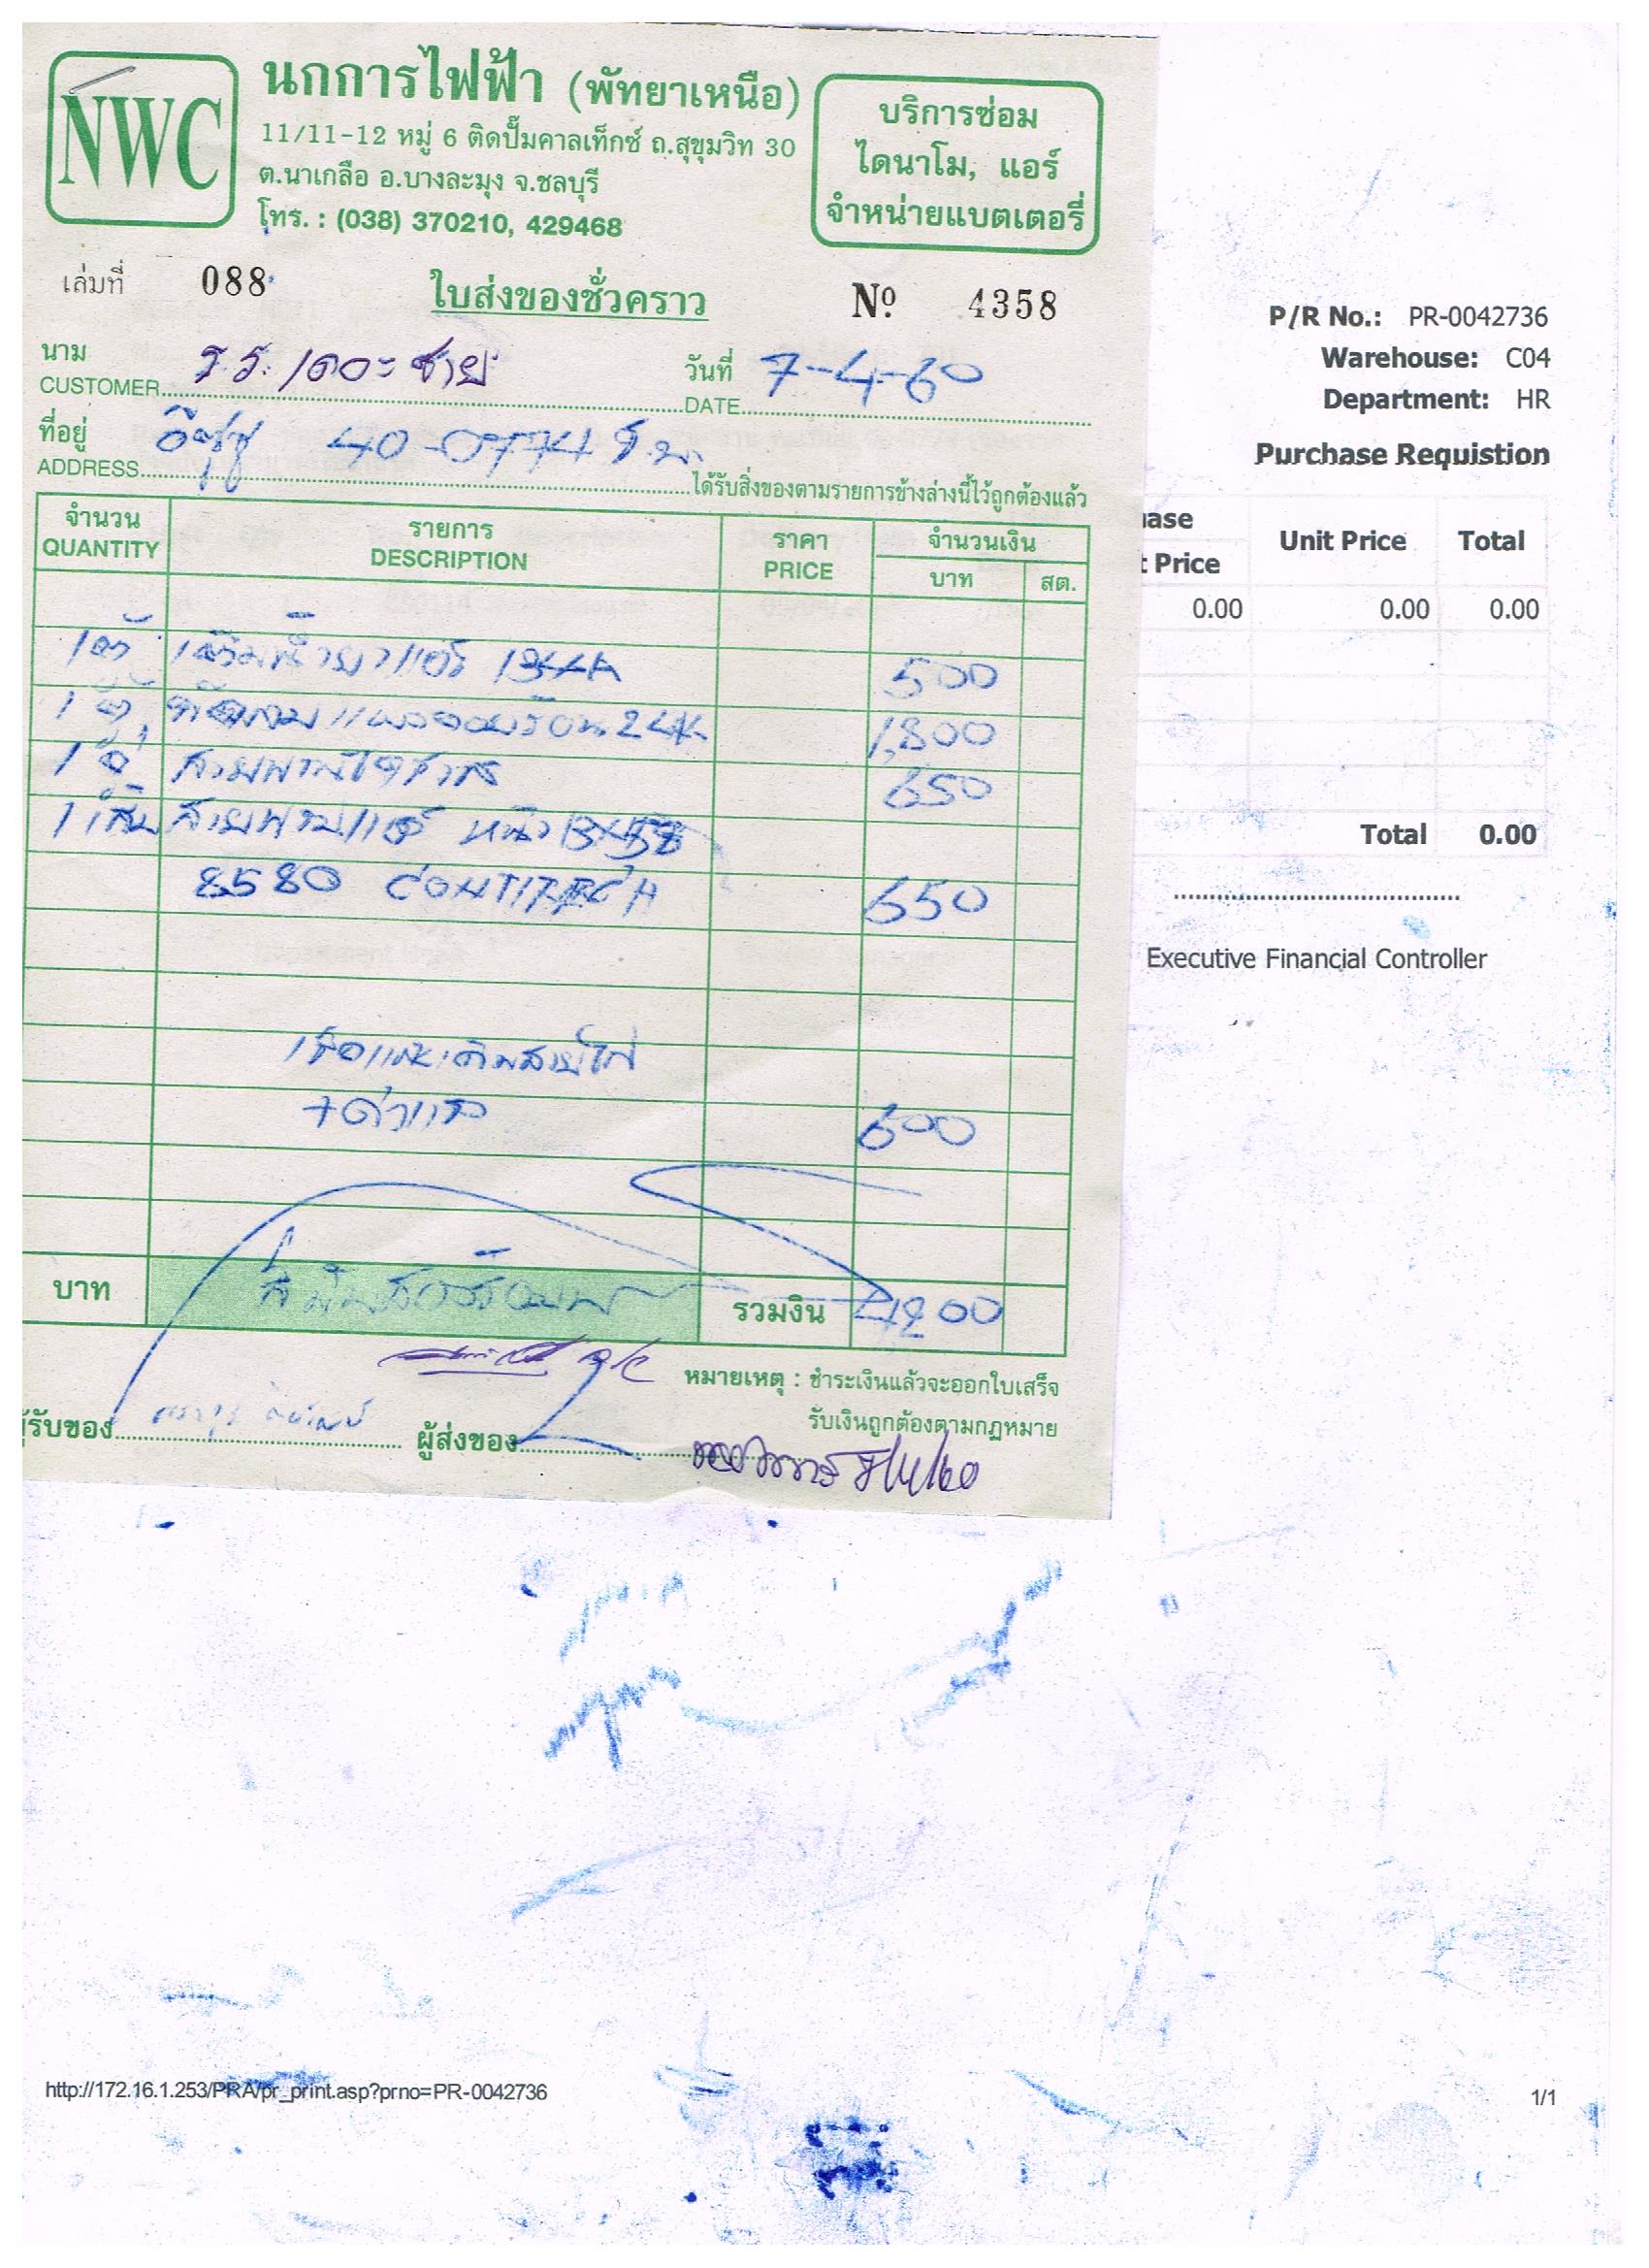 NWC
นกการไฟฟ้า (พัทยาเหนือ)
11/11-12 หมู่ 6 ติดปั๊มคาลเท็กซ์ ถ.สุขุมวิท 30
ต.นาเกลือ อ.บางละมุง จ.ชลบุรี
โทร. : (038) 370210, 429468
บริการซ่อม
ไดนาโม, แอร์
จำหน่ายแบตเตอรี่
เล่มที่ 088
ใบส่งของชั่วคราว
Nº 4358
นาม
CUSTOMER ร.ร. เดอะซาย
วันที่
DATE 7-4-60
ที่อยู่
ADDRESS อีซูซุ 40-0774 ช.บ.
ได้รับสิ่งของตามรายการข้างล่างนี้ไว้ถูกต้องแล้ว
จำนวน รายการ ราคา จำนวนเงิน
QUANTITY DESCRIPTION PRICE บาท สต.
1 เติมน้ำยาแอร์ 134A 500
1 พัดลม 24V 1,800
1 650
1 เส้น สายพานแอร์ หน้า
8580 CONTITECH 650
เช็คและเดินสายไฟ
+ค่าแรง 600
บาท สี่พันสองร้อยบาท รวมเงิน 4200
หมายเหตุ : ชำระเงินแล้วจะออกใบเสร็จ
รับเงินถูกต้องตามกฏหมาย
ผู้รับของ
ผู้ส่งของ
P/R No.: PR-0042736
Warehouse: C04
Department: HR
Purchase Requistion
Price Unit Price Total
0.00 0.00 0.00
Total 0.00
Executive Financial Controller
http://172.16.1.253/PRA/pr_print.asp?prno=PR-0042736
1/1